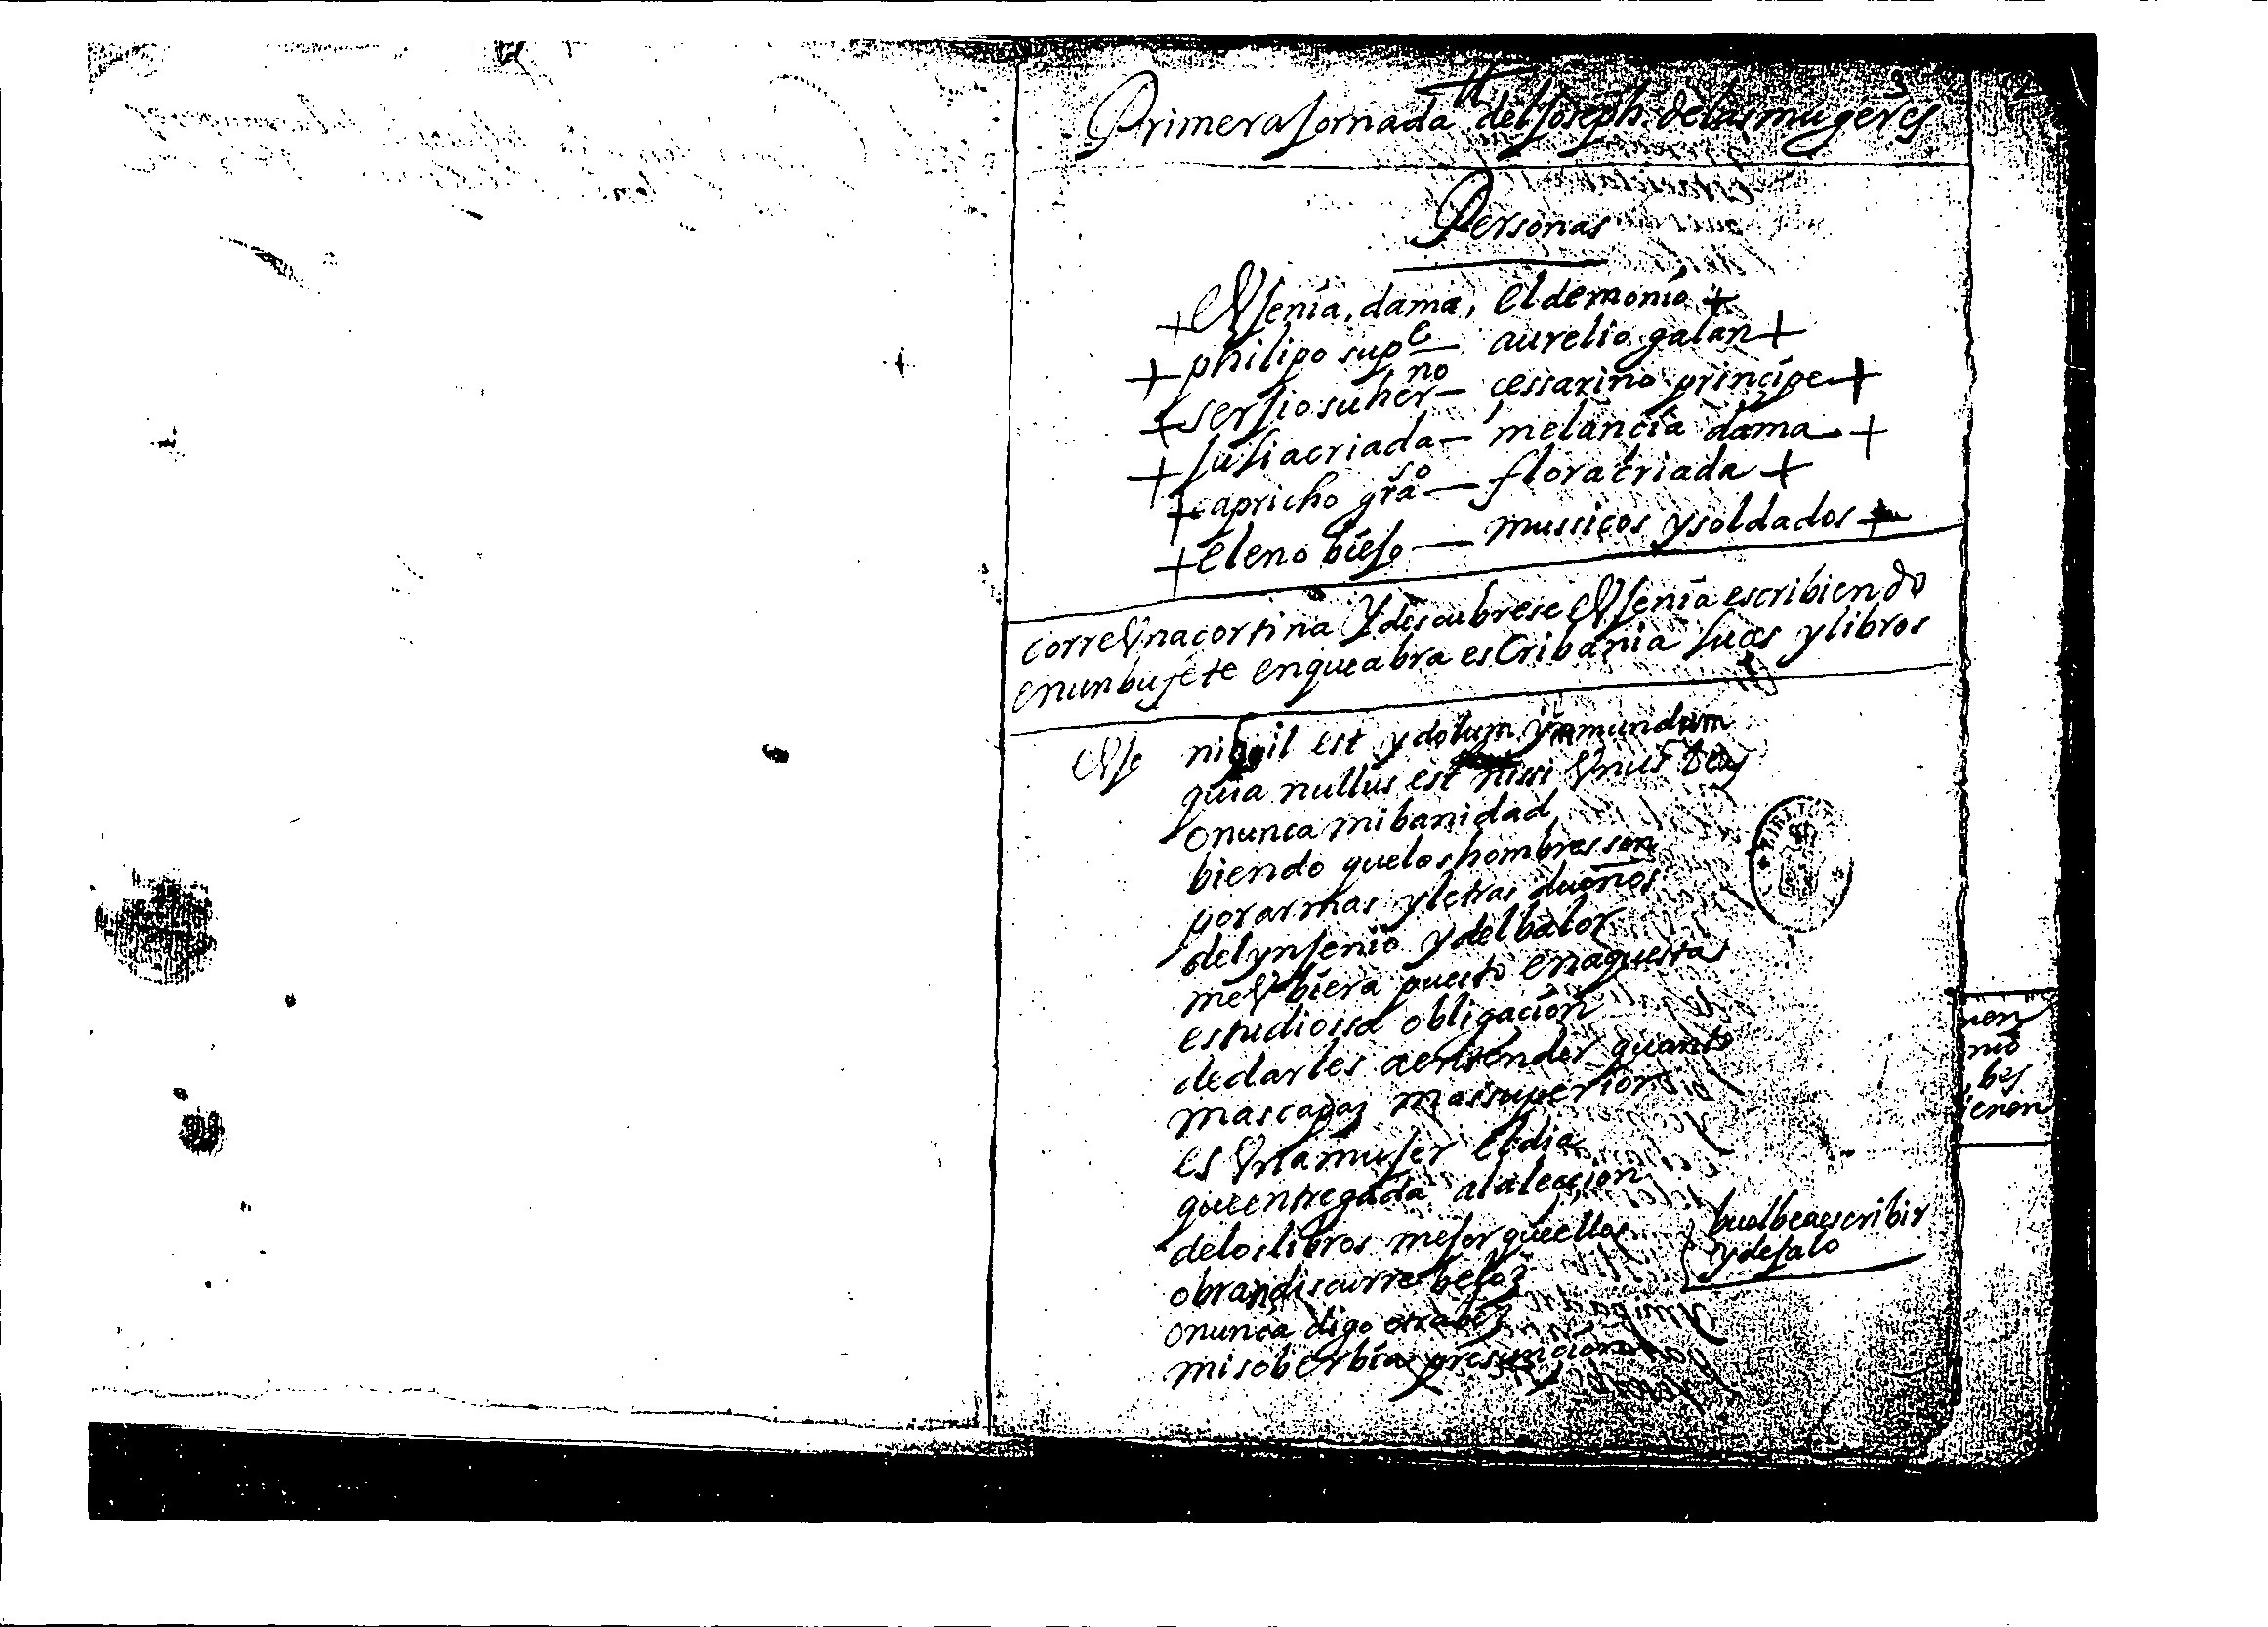 Primera Jornada del Joseph de las mugeres
Personas
+ eUJenia, dama, el demonio +
+ philipo su pe — aurelio galan +
+ serJio su herno — cessarino principe +
+ JuLia criada — melancia dama +
+ capricho graso — flora criada +
+ eleno bieJo — mussicos y soldados +
corre Una cortina Y descubrese eUJenia escribiendo
en un bufete en que abra esCribania luces y libros
eUJe nihil est ydolum ynmundum
quia nullus est nissi Unus Deus
o nunca mi banidad
biendo que los hombres son
por armas y letras dueños
del ynJenio y del balor
me Ubiera puesto en aquesta
estudiossa obligacion
de darles a entender quanto
mas capaz mas superior
es Una muJer el dia
que entregada a la lecçion
de los libros meJor que ellos
obran discurre beloz
buelbe a escribir
y deJalo
o nunca digo otra bez
mi soberbia presuncion